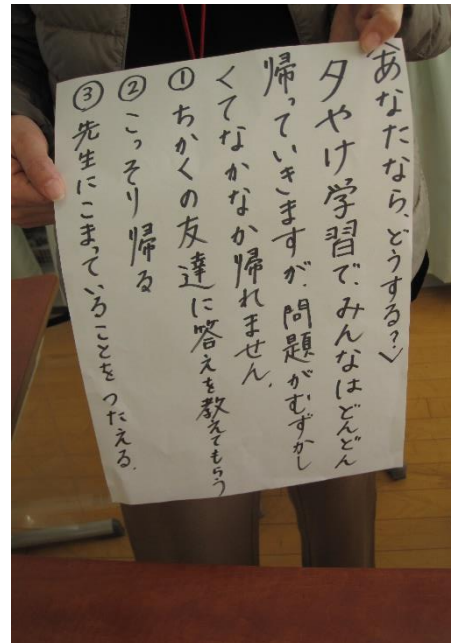 〈あなたなら、どうする?〉
夕やけ学習で、みんなはどんどん
帰っていきますが、問題がむずかし
くてなかなか帰れません。
①ちかくの友達に答えを教えてもらう
②こっそり帰る
③先生にこまっていることをつたえる。